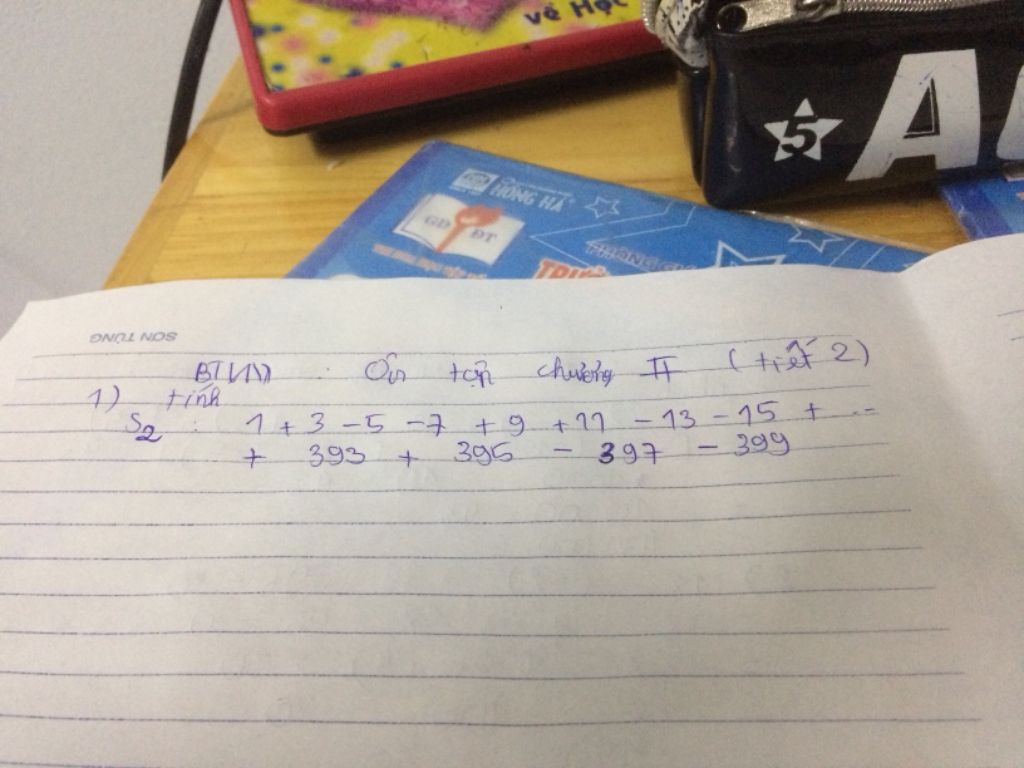 vẽ Học
5 A
HỒNG HÀ
GD ĐT
PHÒNG GI
TRƯỜ
SƠN TÙNG
BTVN Ôn tập chương II (tiết 2)
1) tính
S2 : 1 + 3 - 5 - 7 + 9 + 11 - 13 - 15 + ...
+ 393 + 395 - 397 - 399